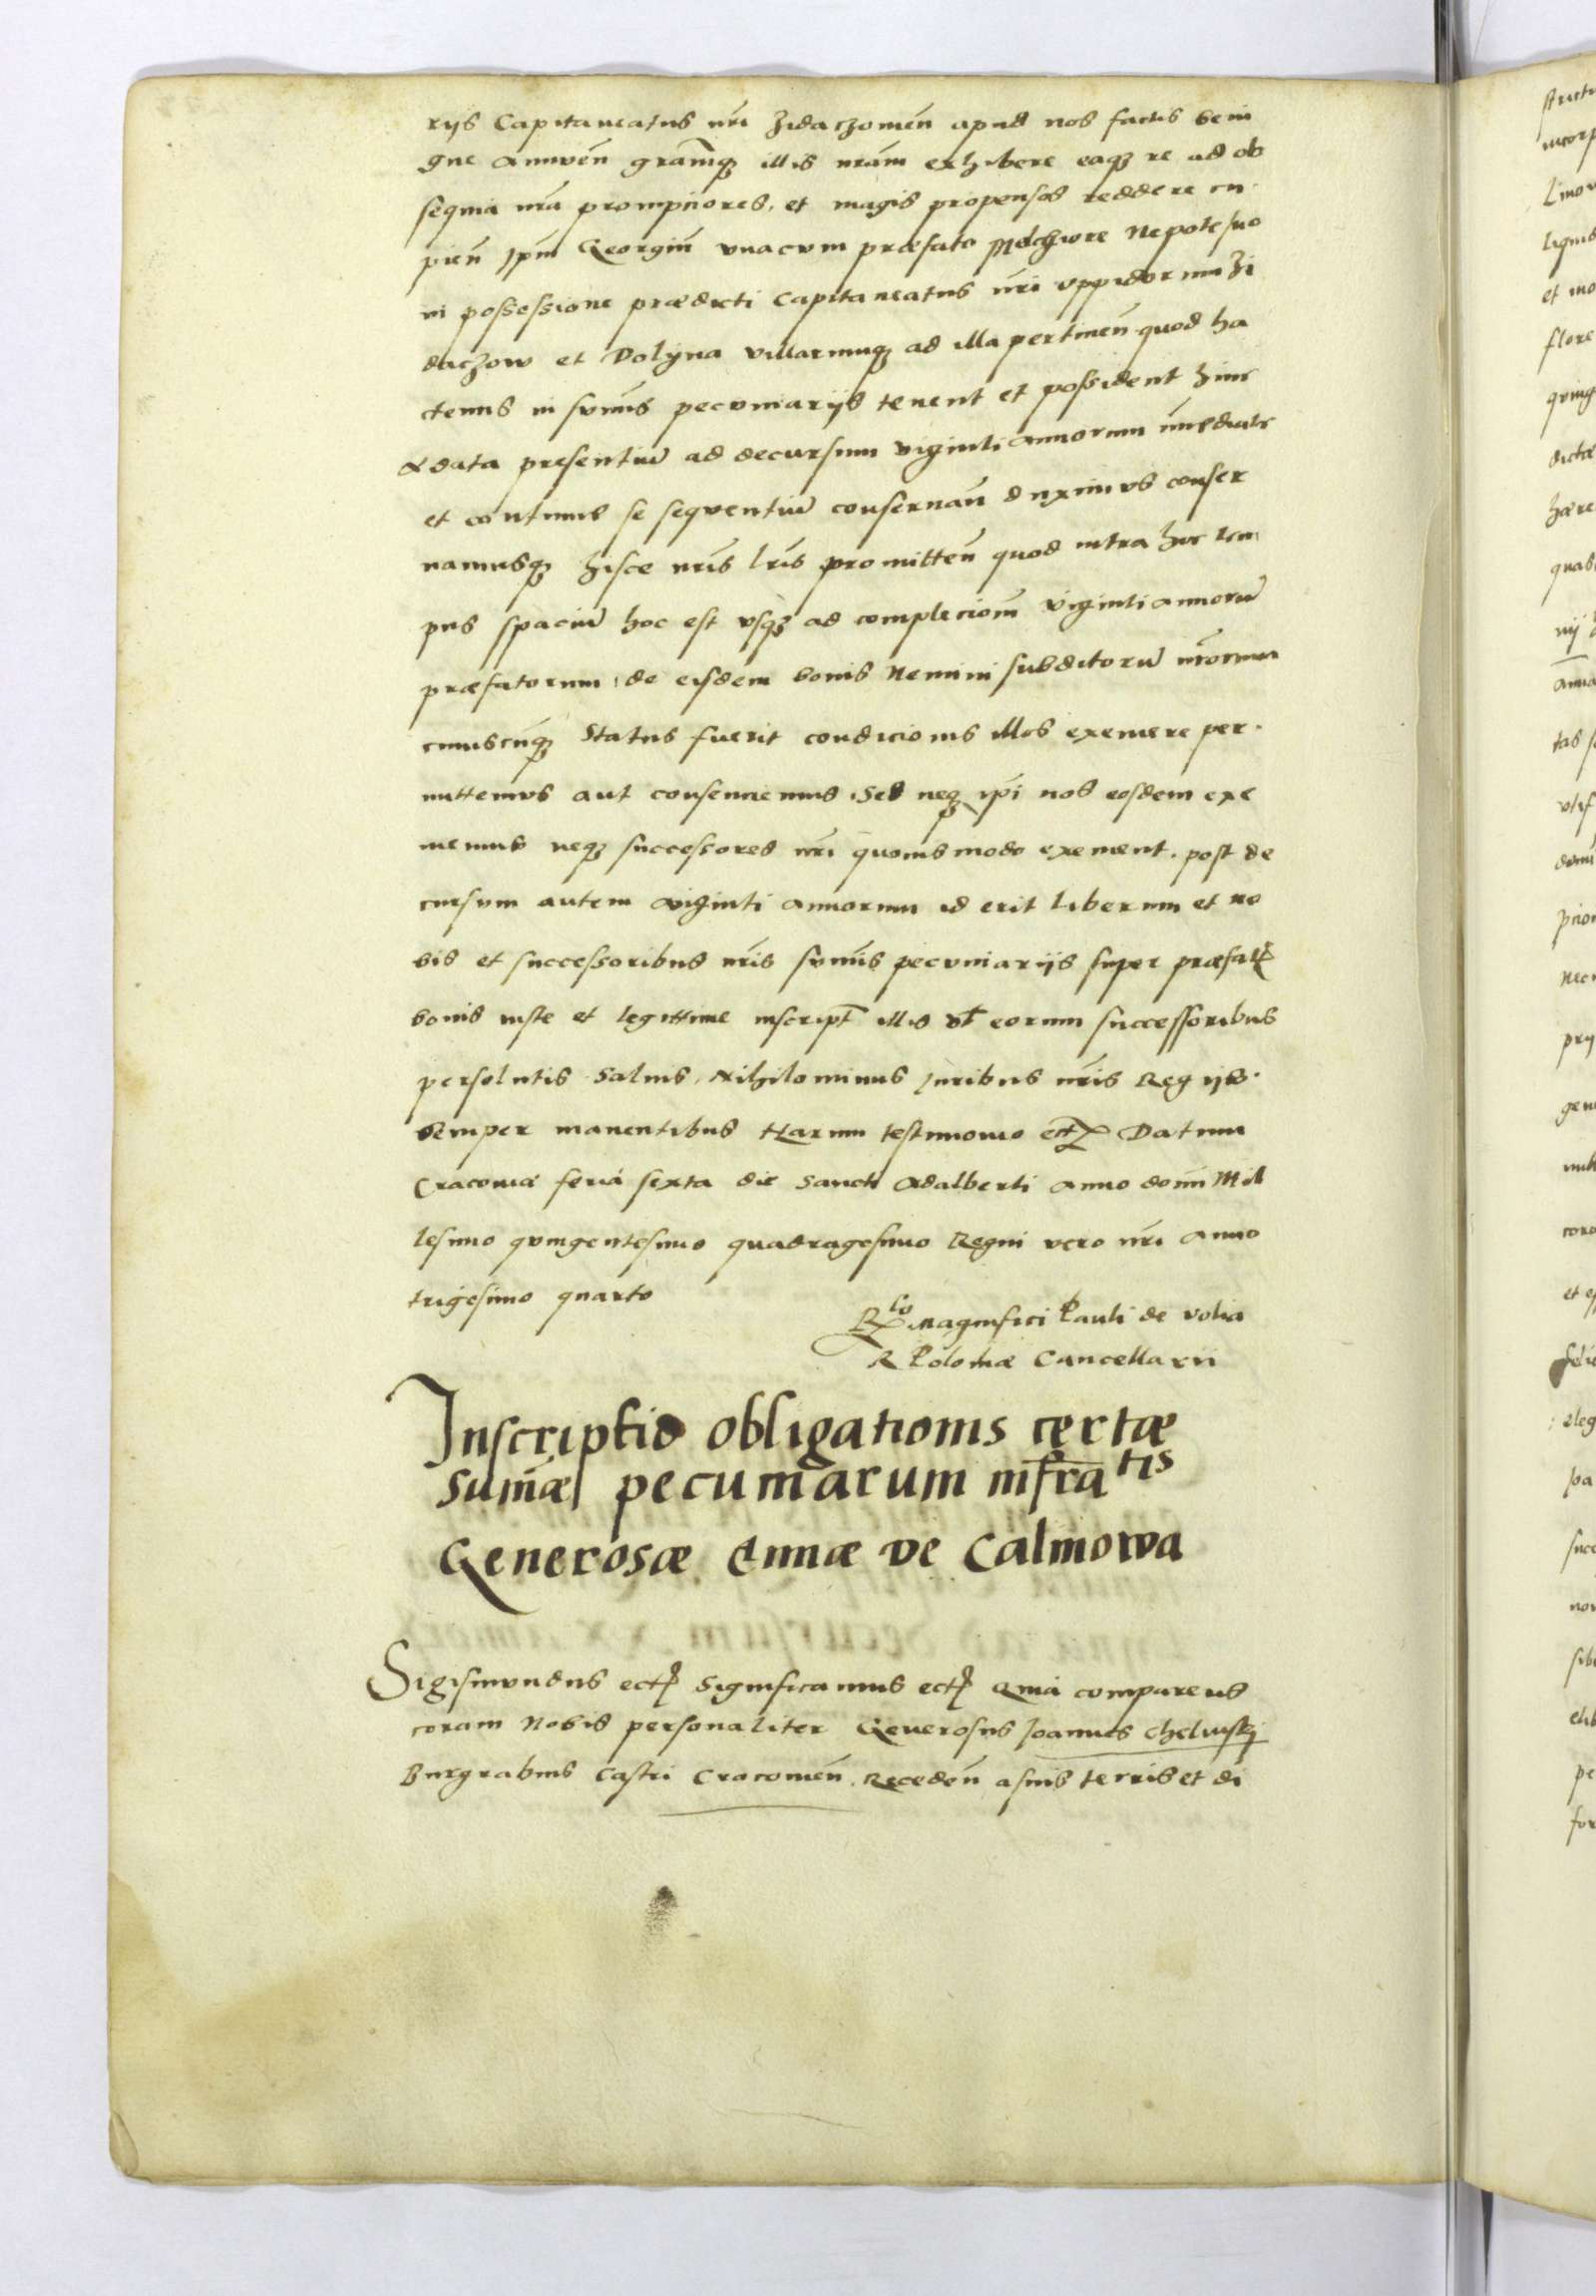 rijs Capitaneatus nrĩ Zidaczowieñ apud nos factis beni
gne annueñ gratiãqʒ illis nrãm exhibere eaqʒ re ad ob
sequia nrã prompciores, et magis propensos reddere cu
pieñ Ipm̃ Georgiũ vnacum præfato Melchiore Nepote suo
in possessione prædicti Capitaneatus nrĩ oppidorum Zi
daczow et Dolyna villarumqʒ ad illa pertineñ quod ha
ctenus in sum̃is pecuniarijs tenent et possident hinc
A data presentiũ ad decursum viginti annorum im̃ediate
et continue se sequentiũ conseruañ duximus conser
uamusqʒ hisce nrĩs lrĩs promitteñ quod intra hoc tem
pus spaciũ hoc est vsqʒ ad complecionẽ viginti annorũ
præfatorum, de eisdem bonis Nemini subditorũ nrõrum
cuiuscũqʒ Status fuerit condicionis illos exemere per
mittemus aut consenciemus, Sed neqʒ ipĩ nos eosdem exe
memus neqʒ successores nrĩ quouismodo exement. post de
cursum autem viginti annorum id erit liberum et no
bis et successoribus nrĩs sum̃is pecuniarijs super præfatꝭ
bonis iuste et legittime inscript̃ illis vꝉ eorum successoribus
persolutis Saluis Nihilominus Iuribus nrĩs Regijs
Semper manentibus Harum testimonio ectꝭ Datum
Cracouiæ feria sexta die Sancti Adalberti anno domĩ Mil
lesimo quingentesimo quadragesimo Regni vero nrĩ anno
trigesimo quarto
Rlõ Magnifici Pauli de Volia
R Poloniæ Cancellarii
Inscriptio obligationis certæ
Sum̃æ pecuniarum infratis
Generosæ Annæ de Calinowa
Sigismundus ectꝭ Significamus ectꝭ Quia comparens
coram Nobis personaliter Generosus Joannes Chelmsky
Burgrabius Castri Cracouieñ. Recedeñ a suis terris et di